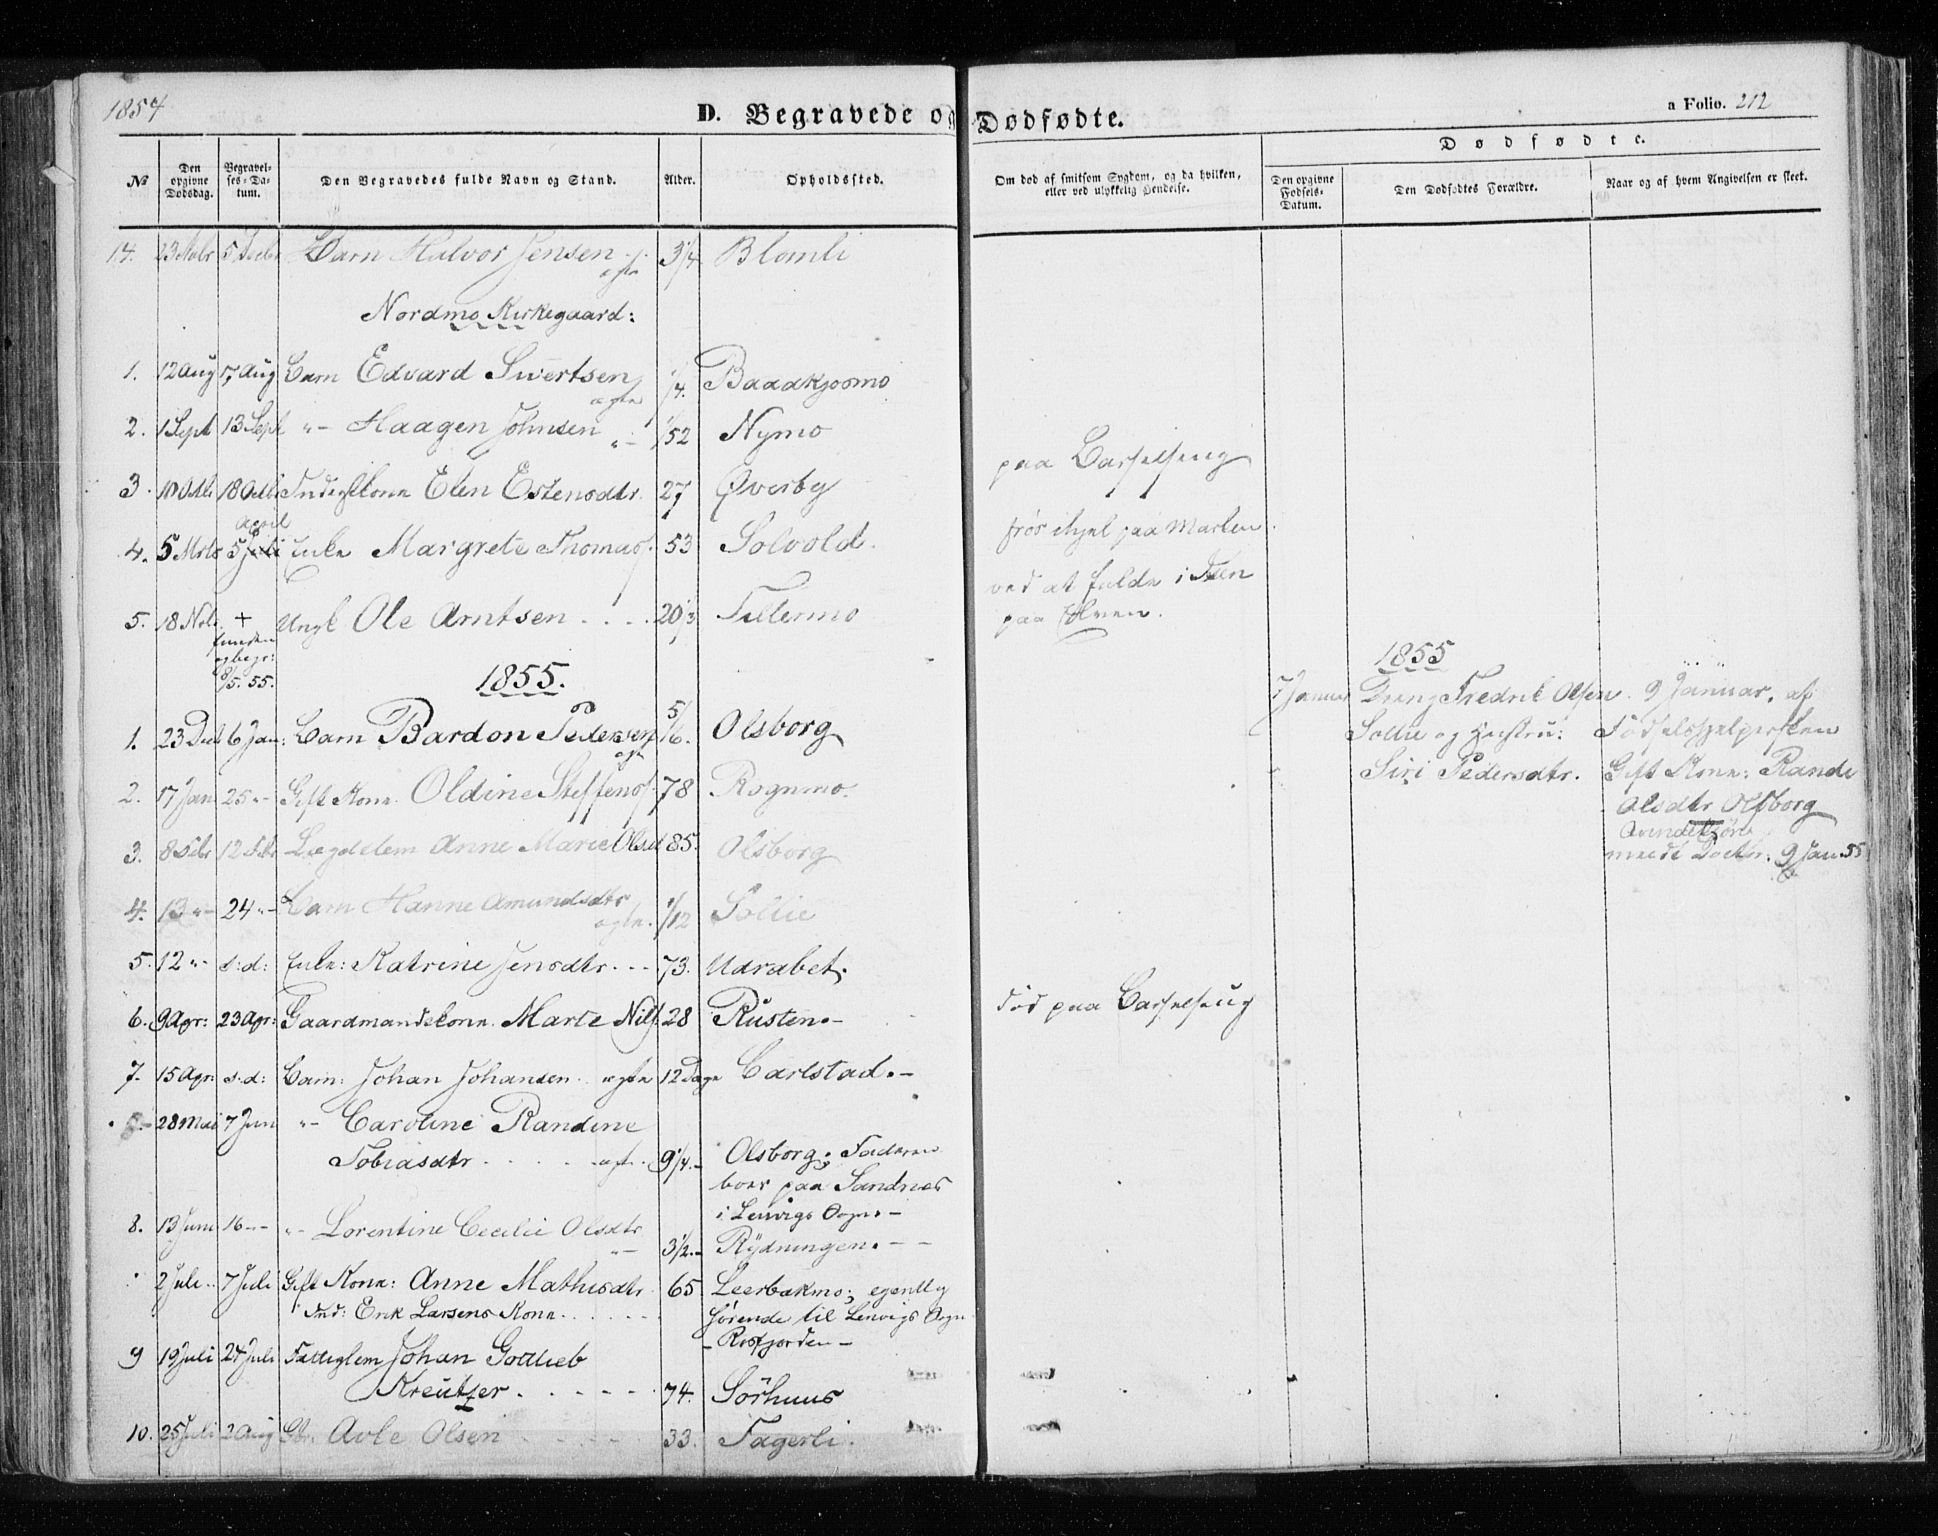 1854
D. Begravede og Dødfødte.
a Folio. 212
No
Den opgivne Dødsdag.
Begravelses-Datum.
Den Begravedes fulde Navn og Stand.
Alder.
Opholdssted.
Om død af smitsom Sygdom, og da hvilken, eller ved ulykkelig Hendelse.
Dødfødte.
Den opgivne Fødsels-Datum.
Den Dødfødtes Forældre.
Naar og af hvem Angivelsen er skeet.
14. 23 Nobr 5 Decbr Barn Halvor Jensen ægte 3/4 Blomli
Nordmo Kirkegaard:
1. 12 Aug 17 Aug Barn Edvard Sivertsen ægte 1/4. Baaakjosmo
2. 1 Sept 13 Sept "- Haagen Johnsen "- 1/52 Nymo
3. 18 Octb Kone Elen Estensdtr. 27 Øverby paa Barselseng
4. 5 Mrts 5 April Enke Margrete Thomasd. 53 Solvold. frøs ihjel paa Marken
5. 18 Nobr + Ungk Ole Arntsen . . . . 20 1/3 ved at falde i
funden og begr: 8/5. 55.
paa Elven.
1855.
1. 23 Decb 6 Jan: Barn Bardon Pedersen ægte 5/6. Olsborg
2. 17 Jan 25 "- Gift Kone. Oldine Steffensd. 78 Rognmo.
3. 8 Febr 12 Febr Lægdslem Anne Marie Olsd 85. Olsborg
4. 13 "- 24 "- Barn Hanne Amundsdtr ægte. 1/12 Sollie
5. 12 "- s:d: Enke: Katrine Jensdtr. - - 73. Udrabet.
6. 9 Apr: 23 Apr: Gaardmandskone. Marte Nilsd. 28 Rusten.- død paa Barselseng
7. 15 Apr: s:d: Barn: Johan Johansen. ægte 12 Dage Carlstad.-
28 Mai 7 Jun "- Caroline Randine
Tobiasdtr . . . . ægte. 9 1/4.- Olsborg; Faderen
boer paa Sandnes
i Lenvigs Sogn.-
8. 13 Juni 16 "- "- Lorentine Cecilie Olsdtr "- 3 1/2.- Rydningen.- -
2 Juli 7 Juli Gift Kone: Anne Mathisdtr 65 Leerbakmo; egentlig
Ind: Erik Larsens Kone . . . . . . hørende til Lenvigs Sogn
- Rosfjorden -
9 19 Juli 24 Juli Fattiglem Johan Gottlieb
Kreutzer . . . . . . 74. Sörhuus
10. 25 Juli 2 Aug Gbr. Avle Olsen 33. Fagerli.
1855
7 Januar Dreng Fredrik Olsen 9 Januar. af
Sollie og Hustru: Fødselshjelpersken
Siri Pedersdtr. Gift Kone: Rande
Olsdtr Olsborg
9 Jan 55